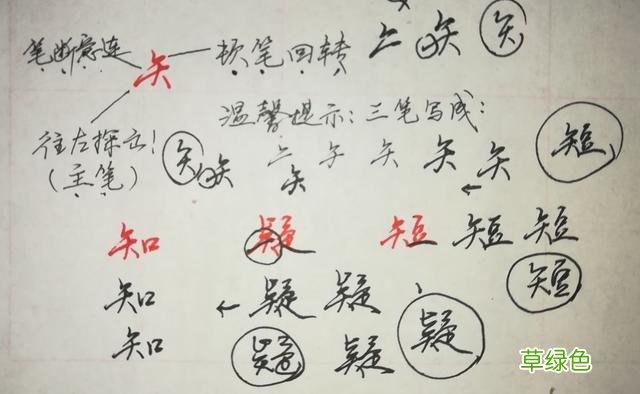 笔断意连 矢 顿笔回转 矢 矢
往左探出!
(主笔)
温馨提示:三笔写成:
矢 矢 矢 矢 矢 矢 短
知 疑 短 短 短
知 疑 疑 短
知 疑 疑 疑
草绿色